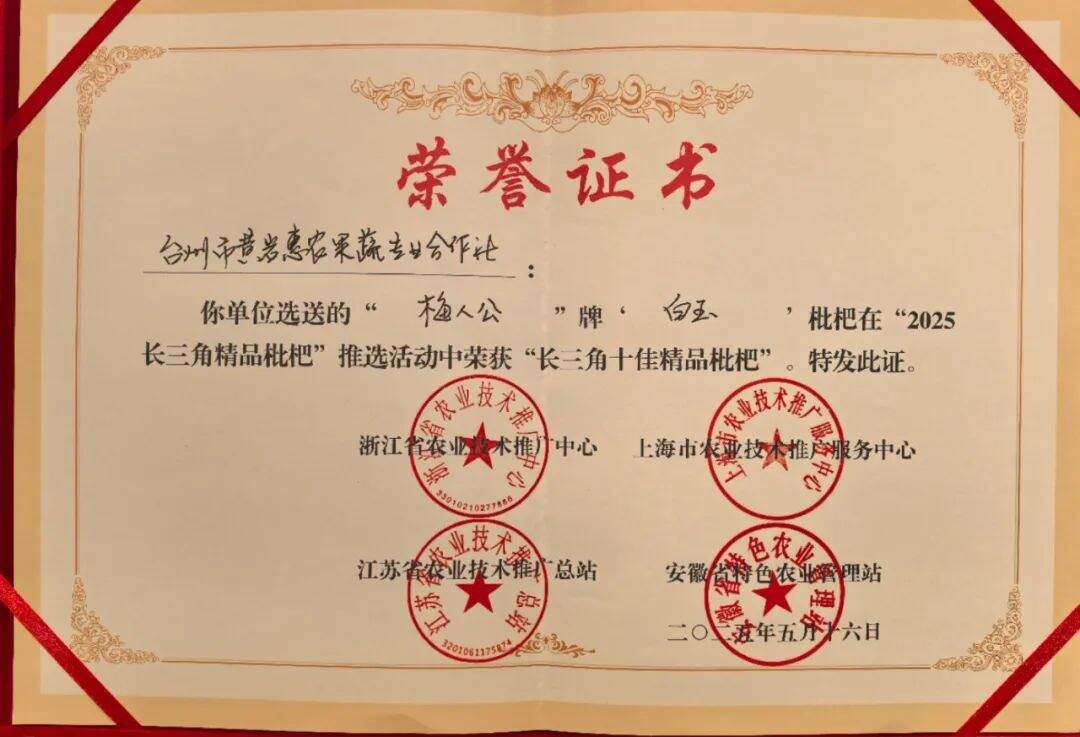 荣誉证书
台州市黄岩惠农果蔬专业合作社：
你单位选送的“梅人公”牌‘白玉’枇杷在“2025
长三角精品枇杷”推选活动中荣获“长三角十佳精品枇杷”。特发此证。
浙江省农业技术推广中心 上海市农业技术推广服务中心
浙江省农业技术推广中心
上海市农业技术推广服务中心
江苏省农业技术推广总站 安徽省特色农业管理站
江苏省农业技术推广总站
3201061175874
安徽省特色农业管理站
二〇二五年五月十六日